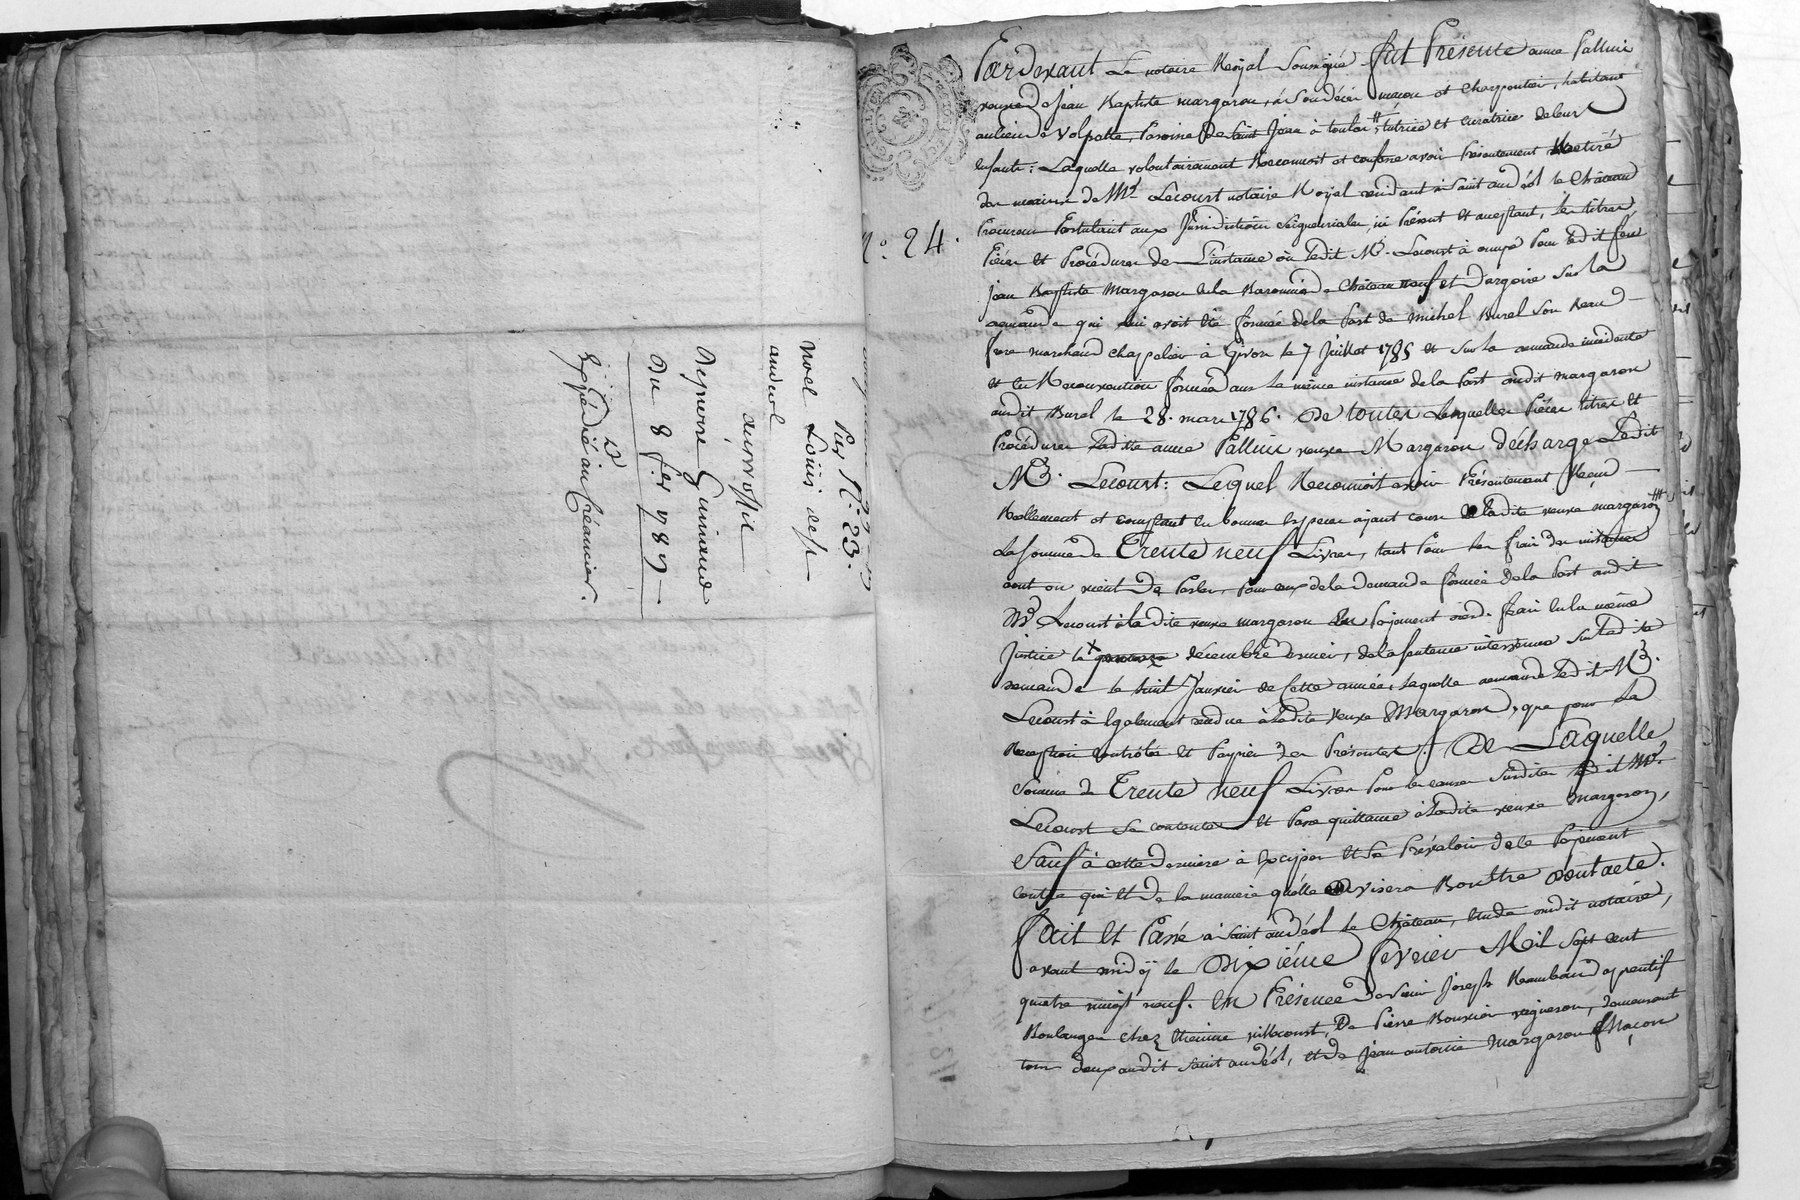 Per N.° 23.
Noel Loüis de st
andeol
aux
Depierre Guinand
Du 8 f.er 1789
Expédié au créancier.
N.° 24.
Pardevant Le notaire Royal Soussigné fut Présente anne Palluis
veuve de Jean Baptiste margaron, à Son décès macon et charpentier, habitant
au lieu de Volpatte, Paroisse de Saint Jean à toulas # tutrice et curatrice de leurs
enfants: Laquelle volontairement Reconnoit et confesse avoir Présentement Retiré
des mains de M.e Lecourt notaire Royal résidant à Saint andéol le Château
Procureur Postulant aux Jurisdictions Seigneuriales, ici Présent et acceptant, les titres
Pièces et Procédures de L'instance où ledit M.e Lecourt à occupé Pour ledit feu
jean Baptiste Margaron en la Baronnie de Chateauneuf et Dargoire Sur la
demande qui lui avoit été formée de la Part de michel Burel Son Beau-
frere marchand chapelier à Givors le 7 Juillet 1785 et Sur la demande incidente
et en Reconvention formée dans la même instance de la Part dudit margaron
audit Burel le 28. mars 1786. De toutes Lesquelles Pièces titres et
Procédures Ladite anne Palluis veuve Margaron décharge Ledit
M.e Lecourt: Lequel Reconnoit avoir Présentement Reçu
Réellement et comptant en bonnes Especes ayant cours de ladite veuve margaron
La Somme de Trente neuf Livres, tant Pour les frais des instances
dont on vient de Parler, Pour ceux de la demande formée de la Part dudit
M.e Lecourt à la dite veuve margaron en Payement desd. frais en la même
Justice le x décembre dernier, de la Sentence intervenue Sur Ladite
demande le huit Janvier de Cette année, laquelle demande Ledit M.e
Lecourt à Egalement rendue à Ladite Veuve Margaron, que pour la
Reception Controle et Papier des Présentes. De Laquelle
Somme de Trente neuf Livres Pour les causes Susdites ledit M.e
Lecourt Se contente et Passe quittance à Ladite veuve margaron,
Sauf à cette derniere à Exciper et Se Prévaloir de le Payement
contre qui et de la maniere qu'elle avisera Bon être Dont acte.
Fait et Passé à Saint andéol le Château, Etude dudit notaire,
avant midÿ le Dixiéme fevrier Mil Sept cent
quatre vingt neuf. En Présence de Sieur Joseph Rambaud apprentif
Boulanger chez Etienne Villecourt, De Pierre Bouvier vigneron, demeurant
tous deux audit Saint andéol, et de Jean antoine Margaron Maçon